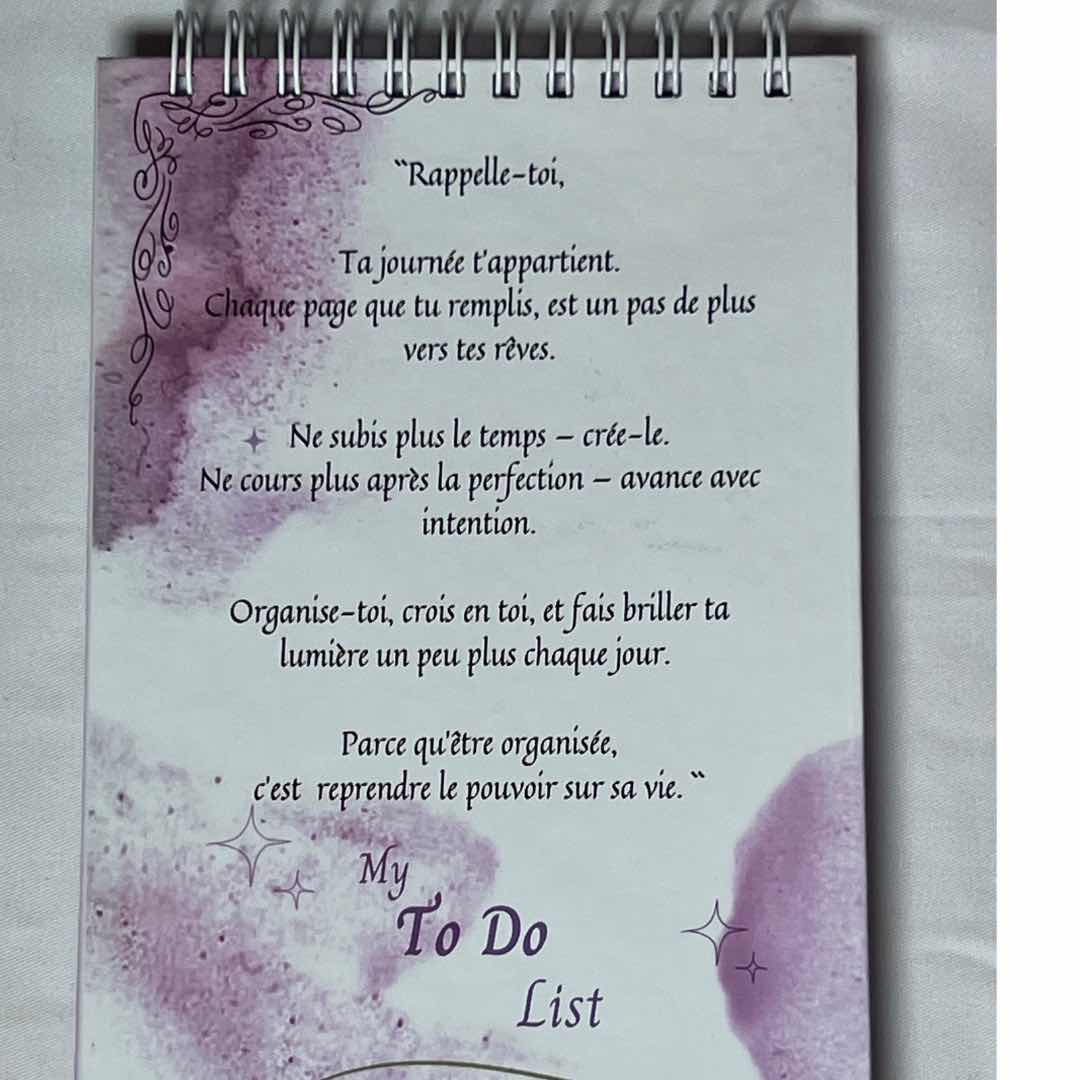 “Rappelle-toi,
Ta journée t'appartient.
Chaque page que tu remplis, est un pas de plus
vers tes rêves.
Ne subis plus le temps – crée-le.
Ne cours plus après la perfection – avance avec
intention.
Organise-toi, crois en toi, et fais briller ta
lumière un peu plus chaque jour.
Parce qu'être organisée,
c'est  reprendre le pouvoir sur sa vie.“
My
To Do
List